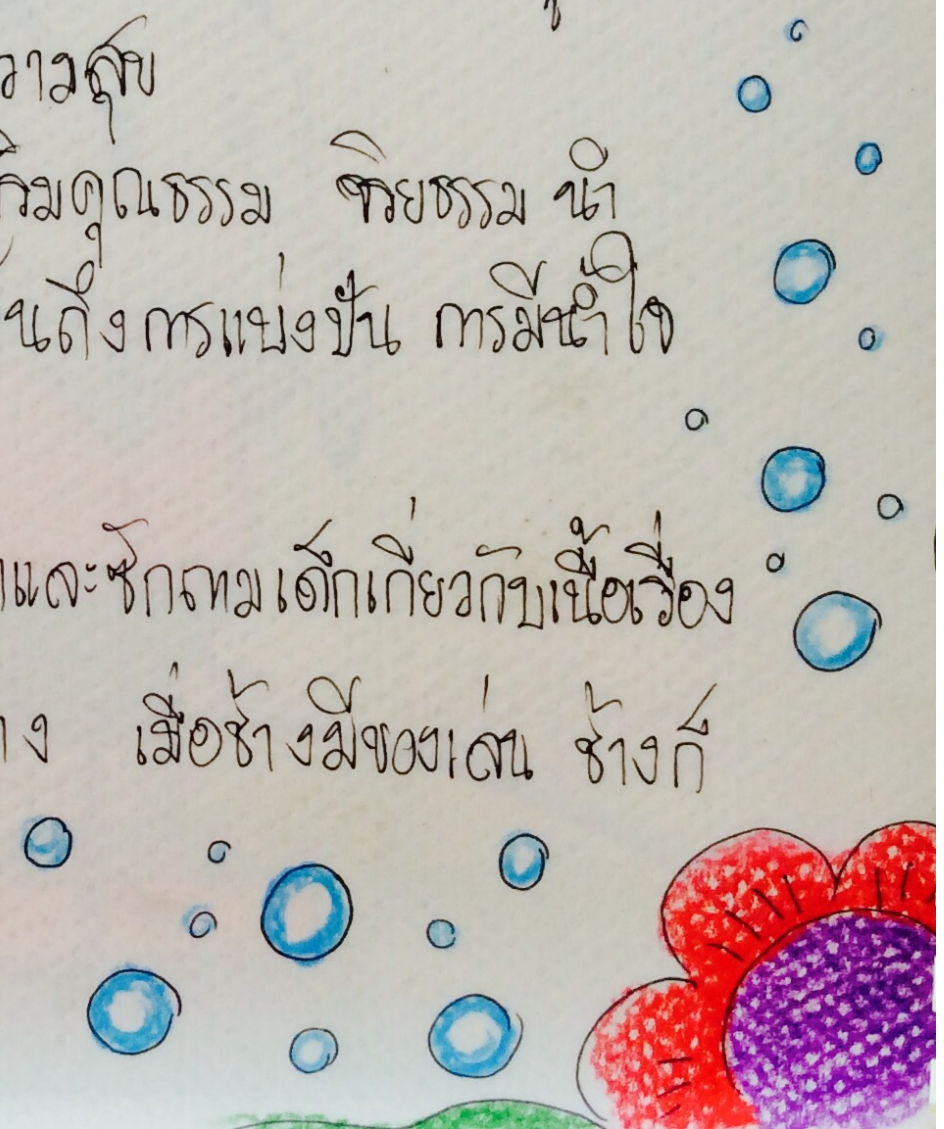 วามสุข
ริมคุณธรรม จริยธรรม นำ
นถึงการแบ่งปัน การมีน้ำใจ
และซักถามเด็กเกี่ยวกับเนื้อเรื่อง
าง เมื่อช้างมีของเล่น ช้างก็